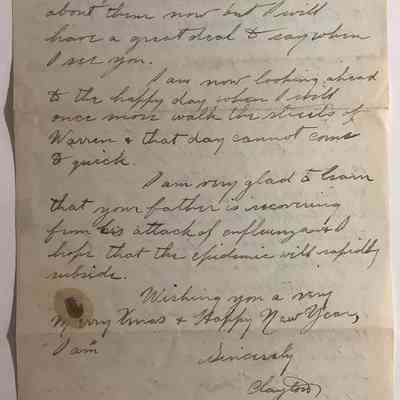 about them now but I will
have a great deal to say when
I see you.
I am now looking ahead
to the happy day when I will
once more walk the streets of
Warren & that day cannot come
to quick.
I am very glad to learn
that your father is recovering
from his attack of enfluenza & I
hope that the epidemic will rapidly
subside.
Wishing you a very
Merry Xmas & Happy New Year,
I am
Sincerely
Clayton